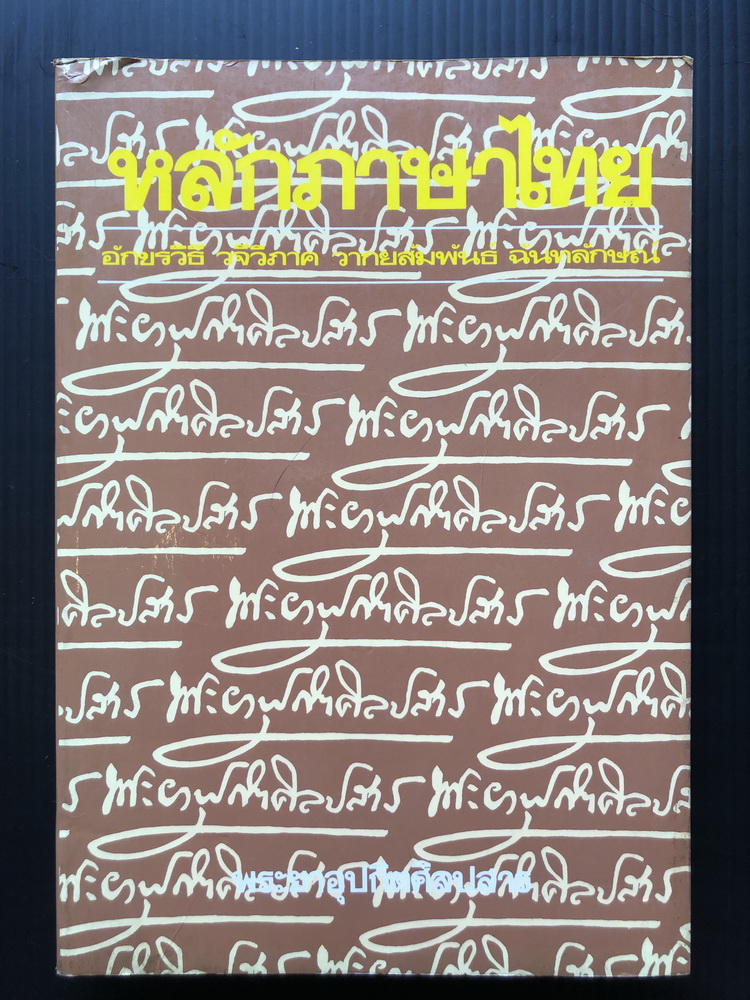 หลักภาษาไทย
อักขรวิธี วจีวิภาค วากยสัมพันธ์ ฉันทลักษณ์
พระยาอุปกิตศิลปสาร